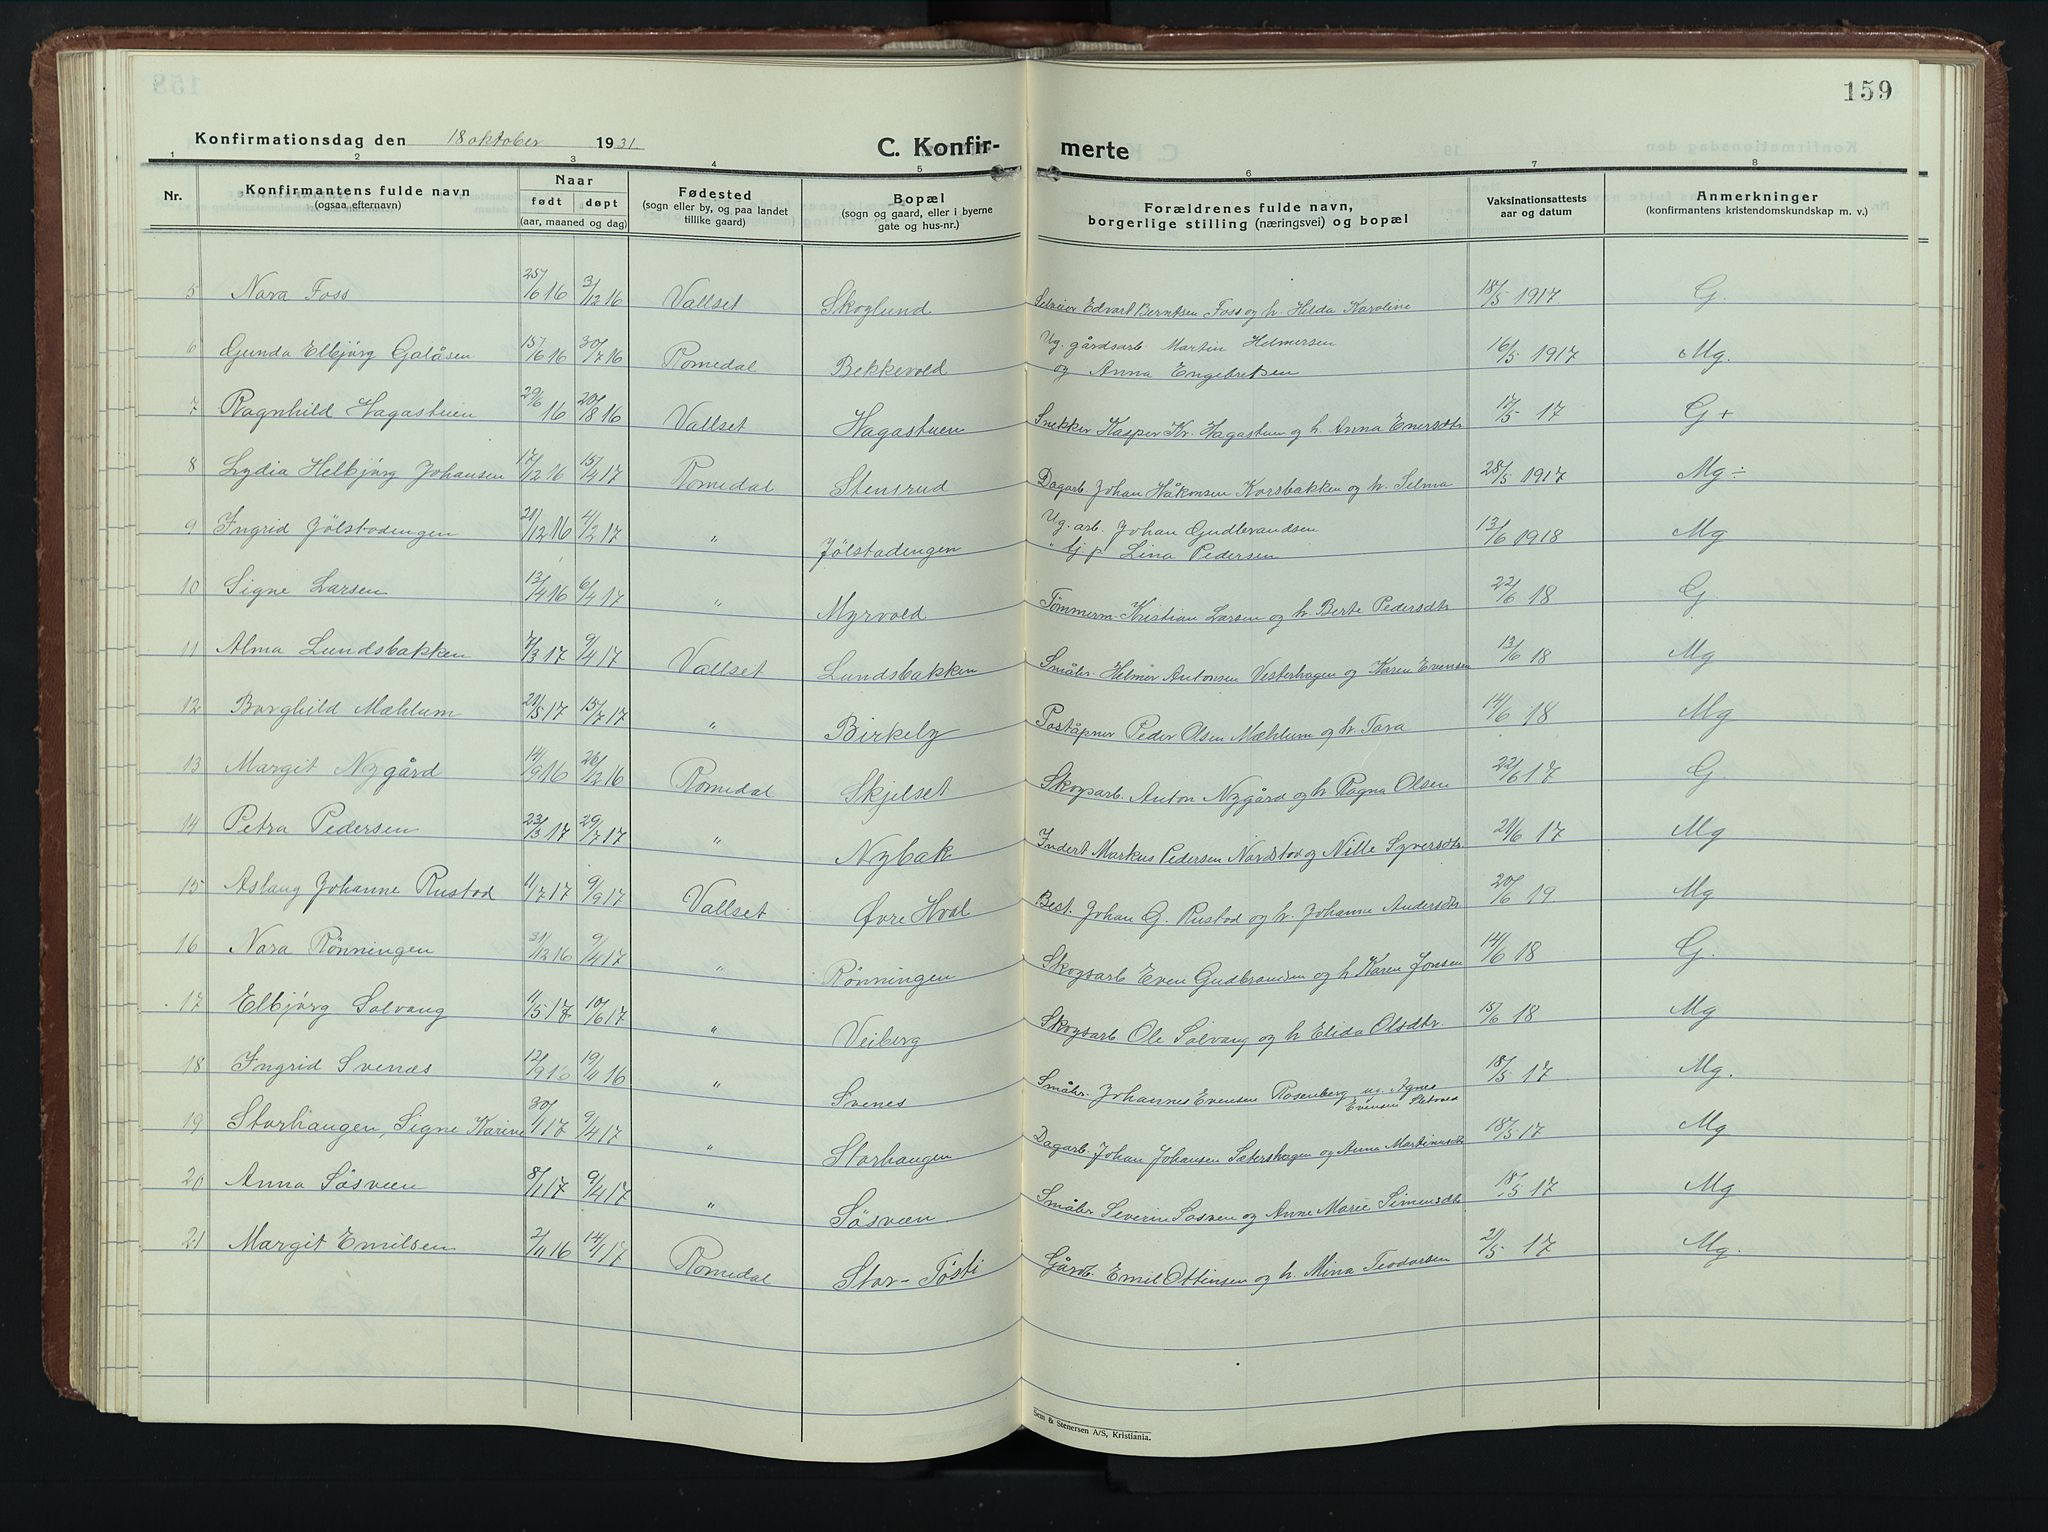 159
Konfirmationsdag den 18 oktober 1931
C. Konfir- merte
1 2 3 4 5 6 7 8
Nr. Konfirmantens fulde navn (ogsaa efternavn) Naar født døpt (aar, maaned og dag) Fødested (sogn eller by, og paa landet tillike gaard) Bopæl (sogn og gaard, eller i byerne gate og hus-nr.) Forældrenes fulde navn, borgerlige stilling (næringsvei) og bopæl Vaksinationsattests aar og datum Anmerkninger (konfirmantens kristendomskundskap m. v.)
5 Nora Foss 25/6 16 3/12 16 Vallset Skoglund Selveier Edvart Berntsen Foss og h. Hilda Karoline 18/5 1917 G.
6 Gunda Elbjørg Galåsen 15/6 16 30/7 16 Romedal Bekkevold Ug. gårdsarb. Martin Helmersen og Anna Engebretsen 16/5 1917 Mg.
7 Ragnhild Hagastuen 29/6 16 20/8 16 Vallset Hagastuen Snekker Kasper Kr. Hagastuen og h. Anna Enersdtr 17/5 17 G+
8 Lydia Helbjørg Johansen 17/12 16 15/4 17 Romedal Stensrud Dagarb. Johan Håkonsen Korsbakken og h. Selma 28/5 1917 Mg ÷
9 Ingrid Jølstadengen 21/12 16 4/2 17 " Jølstadengen Ug. arb. Johan Gudbrandsen " tj. p. Lina Pedersen 13/6 1918 Mg
10 Signe Larsen 13/4 16 6/4 17 " Myrvold Tømmerm. Kristian Larsen og h. Berte Pedersdtr 22/6 18 G.
11 Alma Lundsbakken 7/3 17 9/4 17 Vallset Lundsbakken Småbr. Helmer Antonsen Vesterhagen og Karen Evensen 13/6 18 Mg
12 Borghild Mæhlum 29/5 17 15/7 17 " Birkely Poståpner Peder Olsen Mæhlum og h. Tara 14/6 18 Mg
13 Margit Nygård 14/9 16 26/12 16 Romedal Skjelset Skogsarb. Anton Nygård og h. Ragna Olsen 22/6 17 G.
14 Petra Pedersen 23/3 17 29/7 17 " Nybak Inderst Markus Pedersen Nordsto og Nille Syversdtr 21/6 17 Mg
15 Aslaug Johanne Rustad 11/7 17 9/9 17 Vallset Øvre Hval Best. Johan G. Rustad og h. Johanne Andersdtr 20/6 19 Mg
16 Nora Rønningen 31/12 16 9/4 17 " Rønningen Skogsarb Even Gudbrandsen og h. Karen Jonsen 14/6 18 G.
17 Elbjørg Solvang 11/5 17 10/6 17 " Veiberg Skogsarb. Ole Solvang og h Elida Olsdtr. 15/6 18 Mg
18 Ingrid Svenæs 12/9 16 19/11 16 " Svenes Småbr. Johannes Evensen Rosenberg ug. Agnes Evensen 18/5 17 Mg.
19 Storhaugen, Signe Karine 30/1 17 9/4 17 " Storhaugen Dagarb. Johan Johansen Sætershagen og Anna Martinusdtr 18/5 17 Mg
20 Anna Søsveen 8/1 17 9/4 17 " Søsveen Småbr Severin Søsveen og Anne Marie Simensdtr 18/5 17 Mg
21 Margit Emilsen 2/11 16 14/1 17 Romedal Stor-Tøsti Gårdb. Emil Ottinsen og h. Mina Teodorsen 21/5 17 Mg.
Sem & Stenersen A/S, Kristiania.